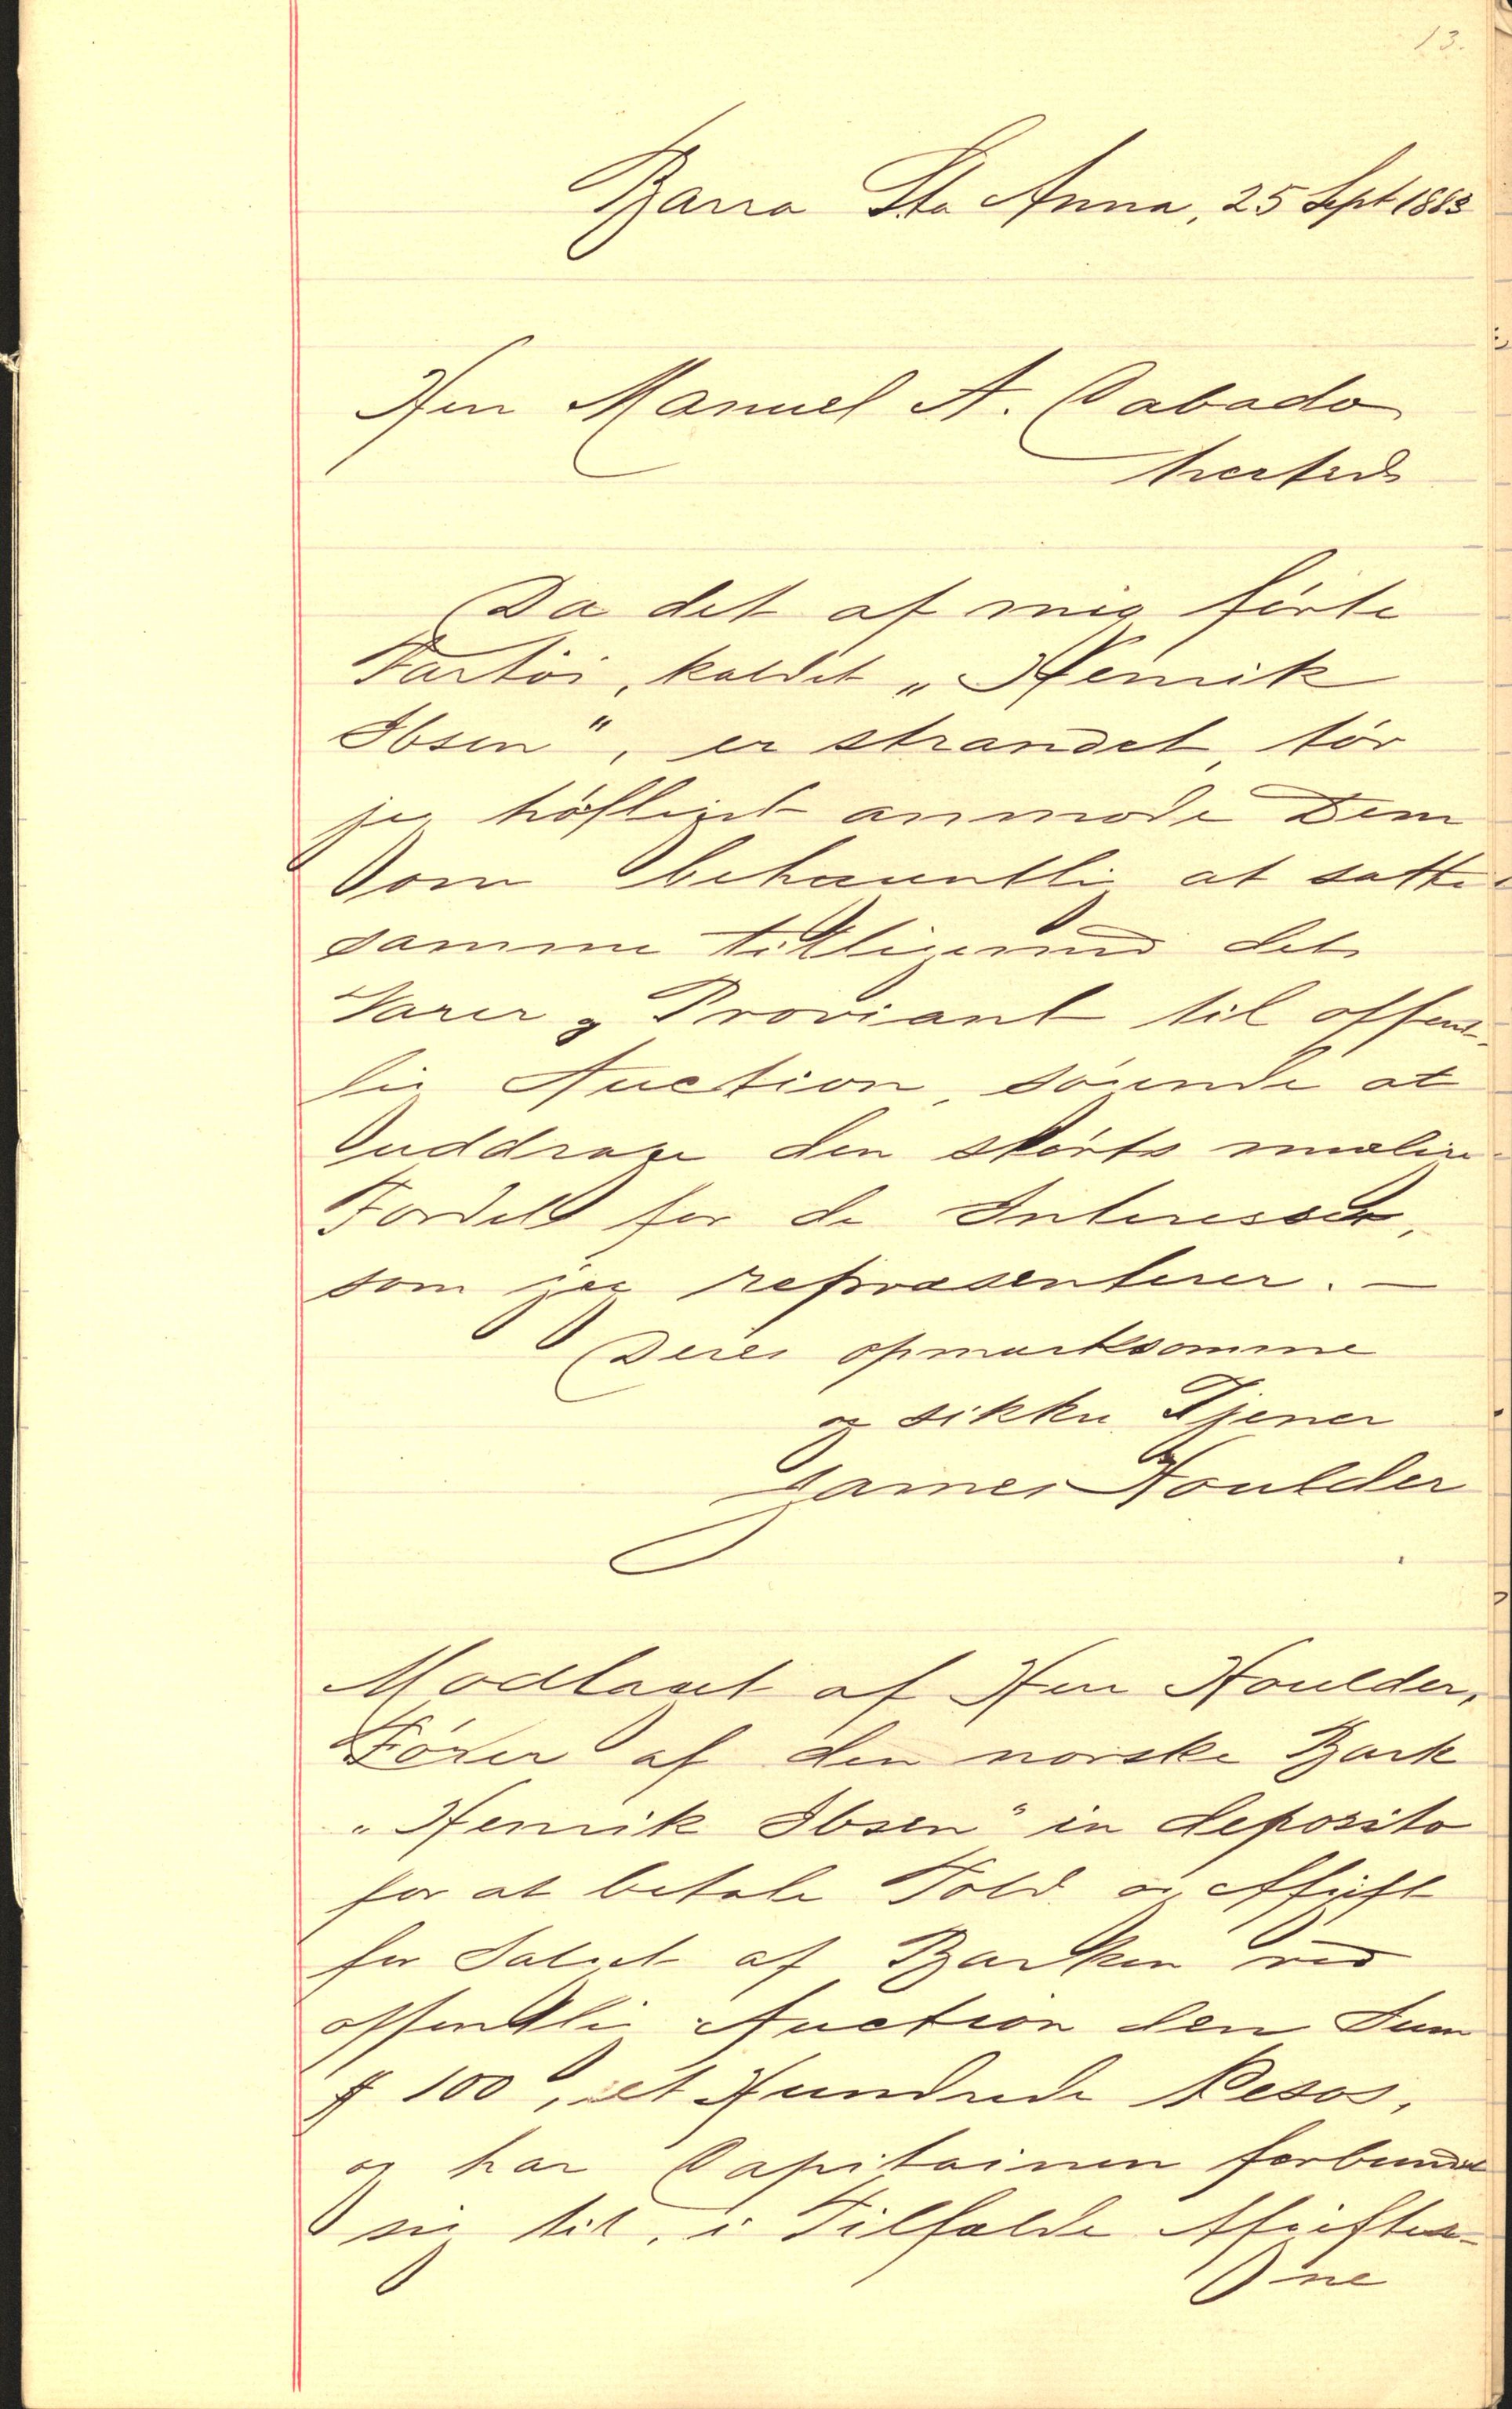 13.
Barra Sta Anna, 25 Sept 1883
Herr Manuel A. Cabado
hersteds
Da det af mig förte
Fartöi, kaldet „Henrik
Ibsen", er strandet, tör
jeg höfligst anmode Dem
om behageligt at sætte
samme tilligemed dets
Varer og Proviant til offent-
lig Auction, søgende at
uddrage den störst mulige
Fordel for de Interesser,
som jeg repræsenterer. —
Deres opmærksomme
og sikkre Tjener
James Houlder
Modtaget af Herr Houlder,
Förer af den norske Bark
„Henrik Ibsen" in deposito
for at betale Told og Afgift
for Salget af Barken ved
offentlig Auction den Sum
$ 100, et Hundrede Pesos,
og har Capitainen forbundet
sig til, i Tilfælde Afgifter-
ne